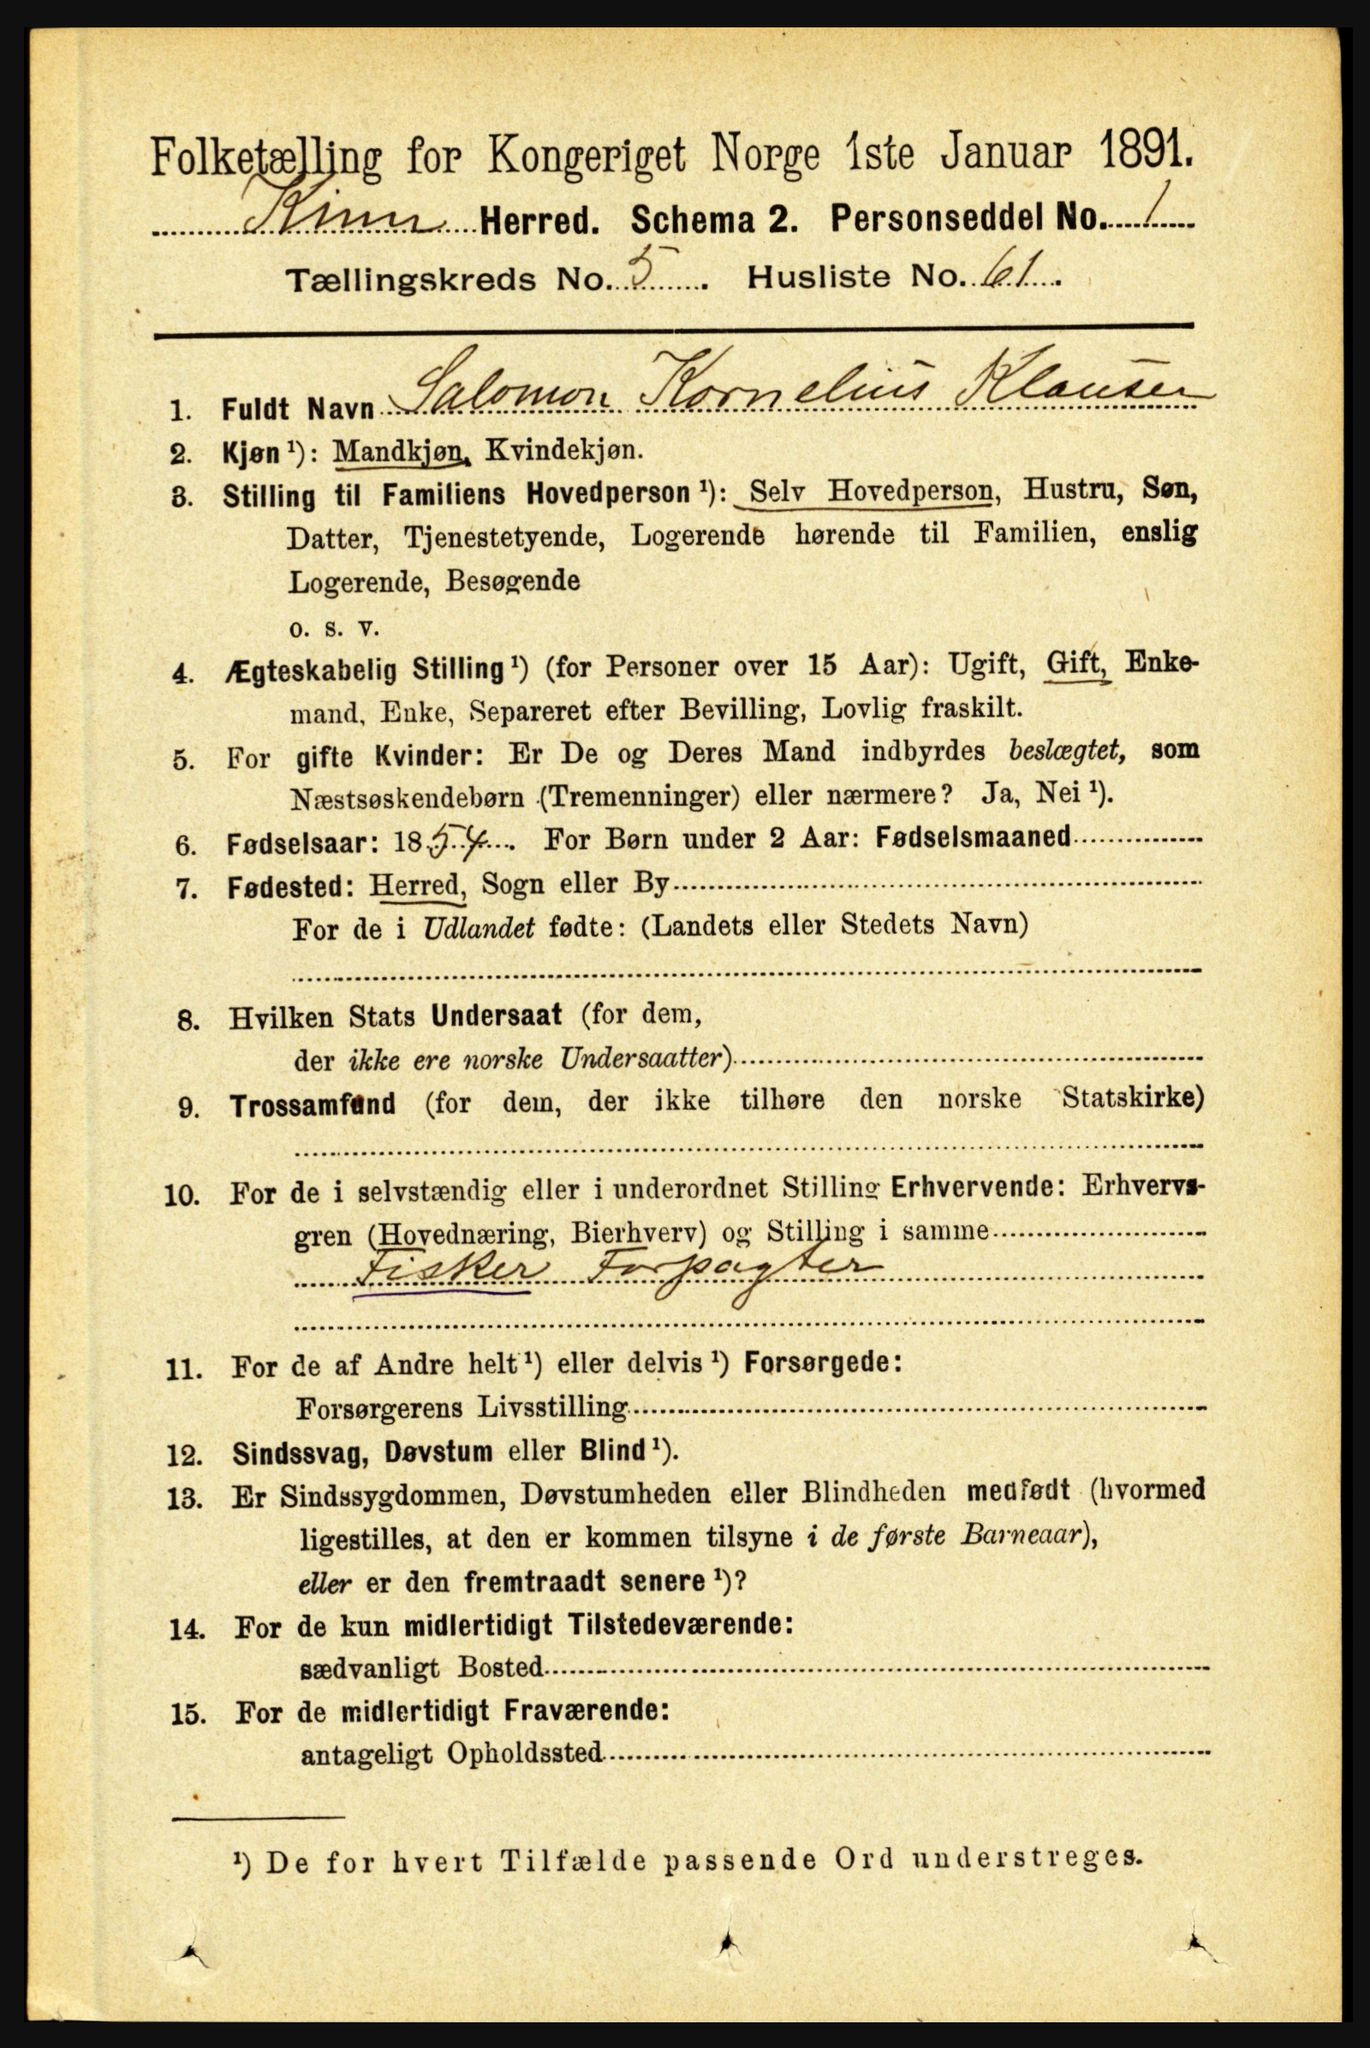 Folketælling for Kongeriget Norge 1ste Januar 1891.
Kinn Herred. Schema 2. Personseddel No. 1
Tællingskreds No. 5. Husliste No. 61.
1. Fuldt Navn Salomon Kornelius Klausen
2. Kjøn ¹): Mandkjøn, Kvindekjøn.
3. Stilling til Familiens Hovedperson ¹): Selv Hovedperson, Hustru, Søn,
Datter, Tjenestetyende, Logerende hørende til Familien, enslig
Logerende, Besøgende
o. s. v.
4. Ægteskabelig Stilling ¹) (for Personer over 15 Aar): Ugift, Gift, Enke-
mand, Enke, Separeret efter Bevilling, Lovlig fraskilt.
5. For gifte Kvinder: Er De og Deres Mand indbyrdes beslægtet, som
Næstsøskendebørn (Tremenninger) eller nærmere? Ja, Nei ¹).
6. Fødselsaar: 1854. For Børn under 2 Aar: Fødselsmaaned
7. Fødested: Herred, Sogn eller By
For de i Udlandet fødte: (Landets eller Stedets Navn)
8. Hvilken Stats Undersaat (for dem,
der ikke ere norske Undersaatter)
9. Trossamfund (for dem, der ikke tilhøre den norske Statskirke)
10. For de i selvstændig eller i underordnet Stilling Erhvervende: Erhvervs-
gren (Hovednæring, Bierhverv) og Stilling i samme
Fisker Forpagter
11. For de af Andre helt ¹) eller delvis ¹) Forsørgede:
Forsørgerens Livsstilling
12. Sindssvag, Døvstum eller Blind ¹).
13. Er Sindssygdommen, Døvstumheden eller Blindheden medfødt (hvormed
ligestilles, at den er kommen tilsyne i de første Barneaar),
eller er den fremtraadt senere ¹)?
14. For de kun midlertidigt Tilstedeværende:
sædvanligt Bosted
15. For de midlertidigt Fraværende:
antageligt Opholdssted
¹) De for hvert Tilfælde passende Ord understreges.